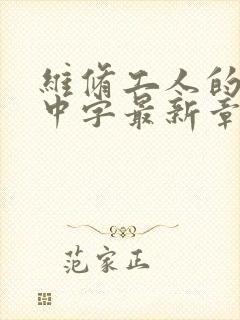 維脩工人的
中字最新章
范家正